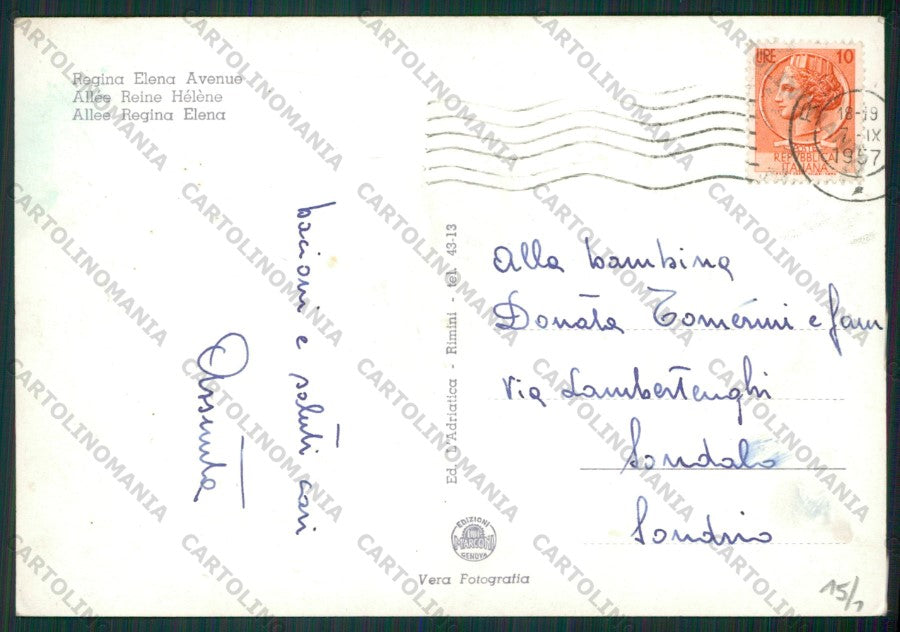 Regina Elena Avenue
Allée Reine Hélène
Allee Regina Elena
LIRE 10
POSTE
REPVBBLICA
ITALIANA
18-19
7-IX
1957
bacioni e saluti cari
Assunta
Ed. L'Adriatica - Rimini - tel. 43-13
Alla bambina
Donata Tomerini e fam
Via Lambertenghi
Sondalo
Sondrio
EDIZIONI
MARCONI
GENOVA
Vera Fotografia
15/1
CARTOLINOMANIA